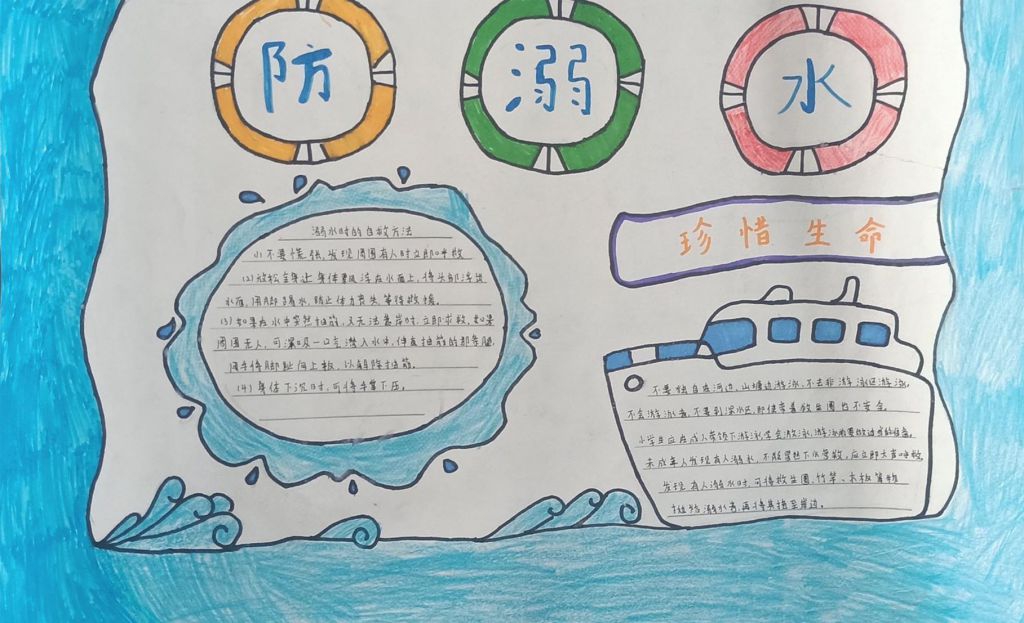 防 溺 水
珍惜生命
溺水时的自救方法
(1)不要慌张,发现周围有人时立即呼救
(2)放松全身让身体飘浮在水面上,将头部浮出
水面,用脚踢水,防止体力丧失,等待救援。
(3)如果在水中突然抽筋,又无法靠岸时,立即求救,如果
周围无人,可深吸一口气潜入水中,伸直抽筋的那条腿,
用手将脚趾向上扳,以解除抽筋。
(4)身体下沉时,可将手掌下压。
不要独自在河边、山塘边游泳,不去非游泳区游泳,
不会游泳者,不要到深水区,即使带着救生圈也不安全。
小学生应在成人带领下游泳学会游泳,游泳前要做适当的准备。
未成年人发现有人溺水,不能冒然下水营救,应立即大声呼救
发现有人溺水时,可将救生圈、竹竿、木板等物
抛给溺水者,再将其拖至岸边。